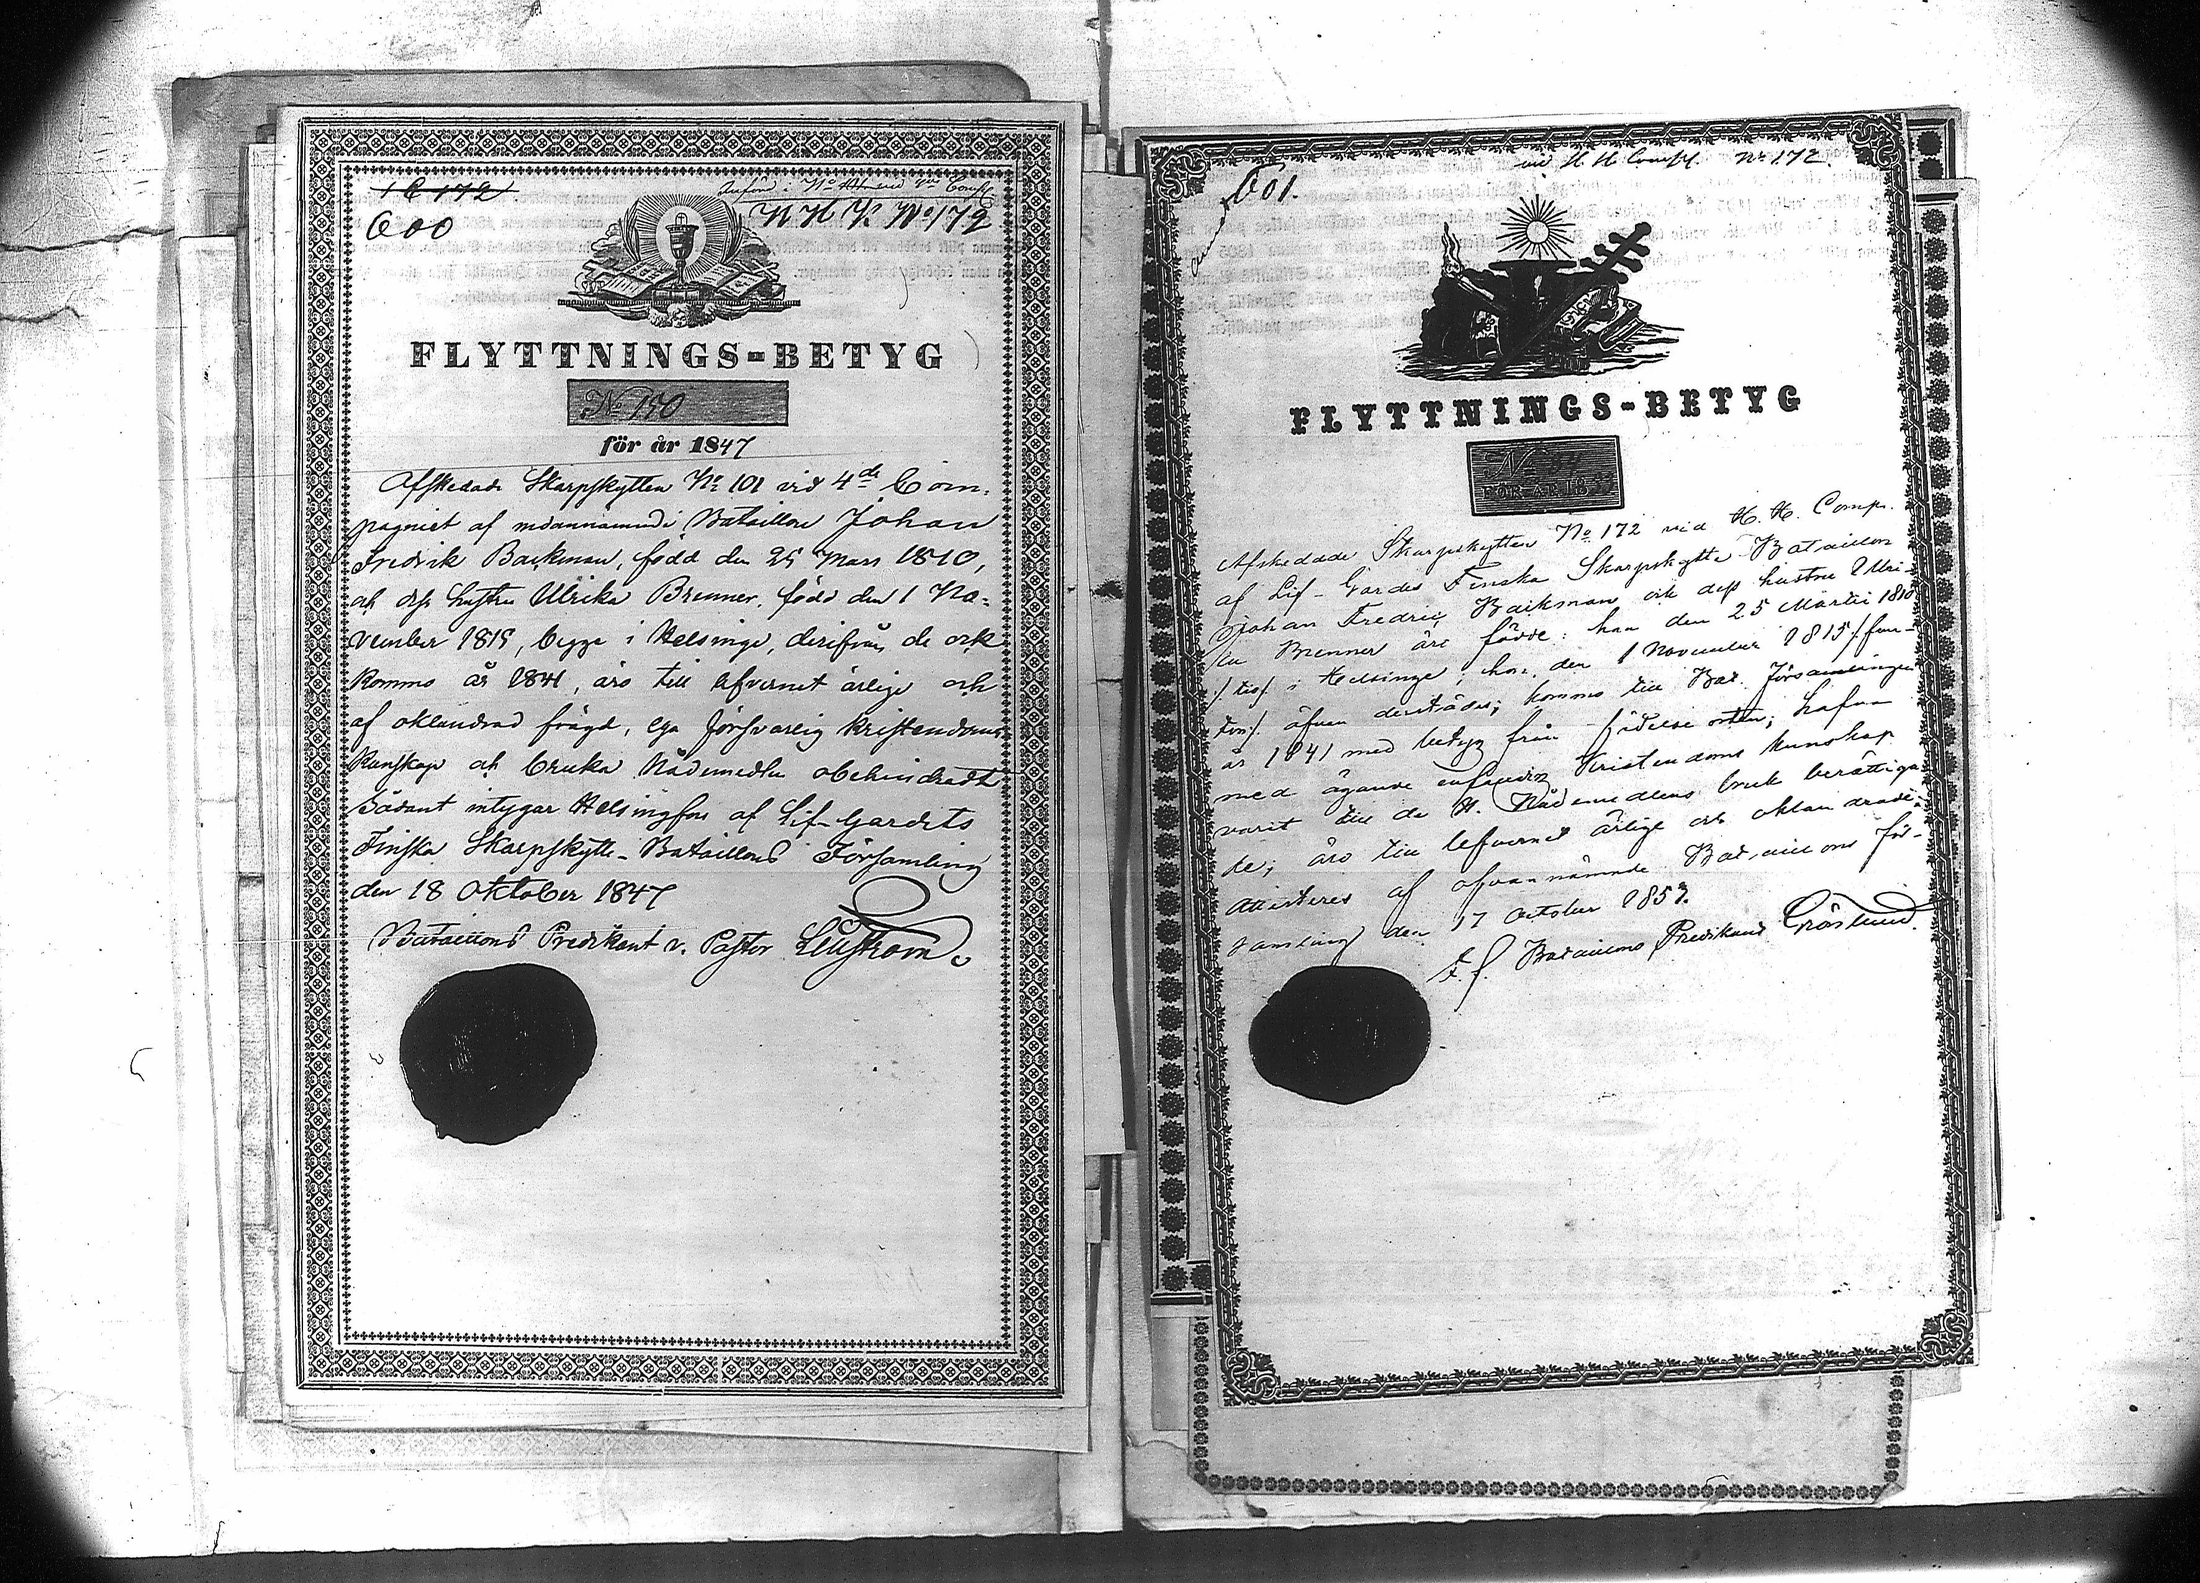 1 C 172.
600
H H K No 172
FLYTTNINGS-BETYG
No 150
för år 1847
Afskedade Skarpskytten No 101 vid 4de Com-
pagniet af md annamundi Bataillon Johan
Fredrik Backman, född den 25 Mars 1810,
och dess hustru Ulrika Brenner, född den 1 No-
vember 1815, begge i Helsinge, derifrån de ock
kommo år 1841, äro till lefvernet ärlige och
af oklandrad frägd, ega försvarlig kristendoms
kunskap och bruka Nådemedlen obehindradt
Sådant intygar Helsingfors af Lif-Gardets
Finska Skarpskytte-Bataillons Församling
den 18 Oktober 1847
Bataillons Predikant v. Pastor
vid H H Comp. No 172.
601.
FLYTTNINGS-BETYG
No
FÖR ÅR 18
Afskedade Skarpskytten No 172 vid H. H. Comp.
af Lif-Gardes Finska Skarpskytte Bataillon
Johan Fredric Backman och dess hustru Ulri-
ka Brenner äro födde: han den 25 Martii 1810
i Helsinge, hon, den 1 November 1815
äfven derstädes; kommo till Bat. Församlingen
år 1841 med betyg från födelse orten; hafva
med ägande enfaldig Kristendoms kunskap
varit till de H. Nådemedlens bruk berättiga-
de; äro till lefvernet ärlige och oklandrade;
Attesteras af ofvannämnde Bataillons För-
samling den 17 October 1853.
t. f. Bataillons Predikant